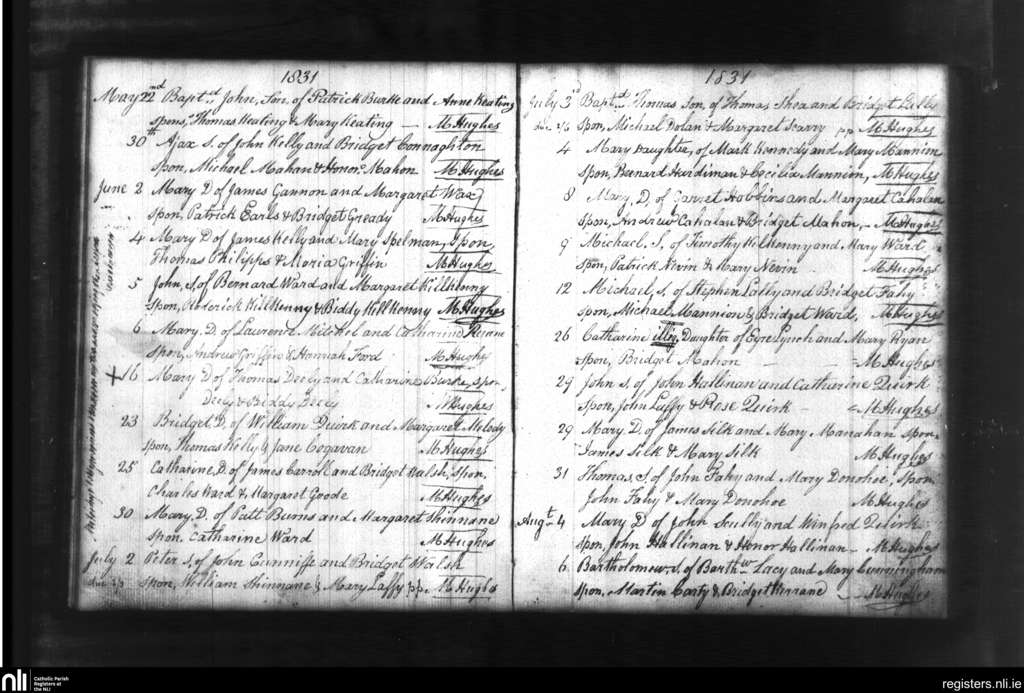 1831
May 22nd Baptd John, Son of Patrick Burke and Anne Keating
Spons, Thomas Keating & Mary Keating — M Hughes
30th Ajax S. of John Kelly and Bridget Connaghton
Spon, Michael Mahan & Honor Mahon M Hughes
June 2 Mary D of James Gannon and Margaret Wax
Spon, Patrick Earls & Bridget Gready M Hughes
4 Mary D of James Kelly and Mary Spelman, Spon,
Thomas Philipps & Maria Griffin M Hughes
5 John, S. of Bernard Ward and Margaret Killkenny
Spon, Roderick Killkenny & Biddy Killkenny M Hughes
6 Mary. D. of Laurence Mitchel and Catharine
Spon, Andrew Griffin & Hannah Ford M Hughes
+16 Mary D of Thomas Deely and Catharine Burke, Spon,
Deely & Biddy Deely M Hughes
23 Bridget D. of William Quirk and Margaret Melody
Spon, Thomas Kelly & Jane Cogavan M Hughes
25 Catharine, D. of James Carroll and Bridget Walsh, Spon,
Charles Ward & Margaret Goode M Hughes
30 Mary. D. of Patt Burns and Margaret Shinnane
Spon. Catharine Ward M Hughes
July 2 Peter S. of John Cunniffe and Bridget Walsh
Spon, William Shinnane & Mary Laffy pp. M Hughes
1831
July 3rd Baptd Thomas Son, of Thomas Shea and Bridget
Spon, Michael Dolan & Margaret Scarry pp M Hughes
4 Mary Daughter, of Mark Kennedy and Mary Mannion
Spon, Bernard Hardiman & Cecilia Mannion, M Hughes
8 Mary, D. of Garret Hobbins and Margaret Cahalan
Spon, Andrew Cahalan & Bridget Mahon, M Hughes
9 Michael. S. of Timothy Kilkenny and Mary Ward
Spon, Patrick Nevin & Mary Nevin M Hughes
12 Michael, S. of Stephen Lally and Bridget Fahy
Spon, Michael Mannion & Bridget Ward, M Hughes
26 Catharine illeg. Daughter of Eyre Lynch and Mary Ryan
Spon, Bridget Mahon — M Hughes
29 John S. of John Hallinan and Catharine Quirk
Spon, John Luffy & Rose Quirk — M Hughes
29 Mary. D. of James Silk and Mary Manahan Spon.
James Silk & Mary Silk M Hughes
31 Thomas, S. of John Fahy and Mary Donohoe, Spon,
John Fahy & Mary Donohoe M Hughes
Augt 4 Mary D of John Scully and Winfred Quirk
Spon, John Hallinan & Honor Hallinan — M Hughes
6 Bartholomew, S. of Barthw Lacy and Mary Cunningham
Spon, Martin Carty & Bridget M Hughes
nli Catholic Parish
Registers at
the NLI
registers.nli.ie